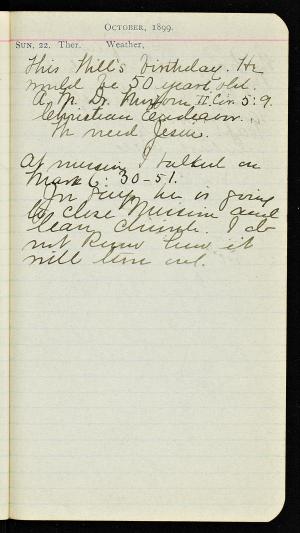 OCTOBER, 1899.
SUN. 22. Ther. Weather,
This Will's birthday. He
would be 50 years old.
A.M. Dr. II Cor. 5:9.
Christian Endeavor.
We need Jesus.
At mission I talked on
Mark 6:30-51.
he is going
to close Mission and
leave church. I do
not know how it
will turn out.